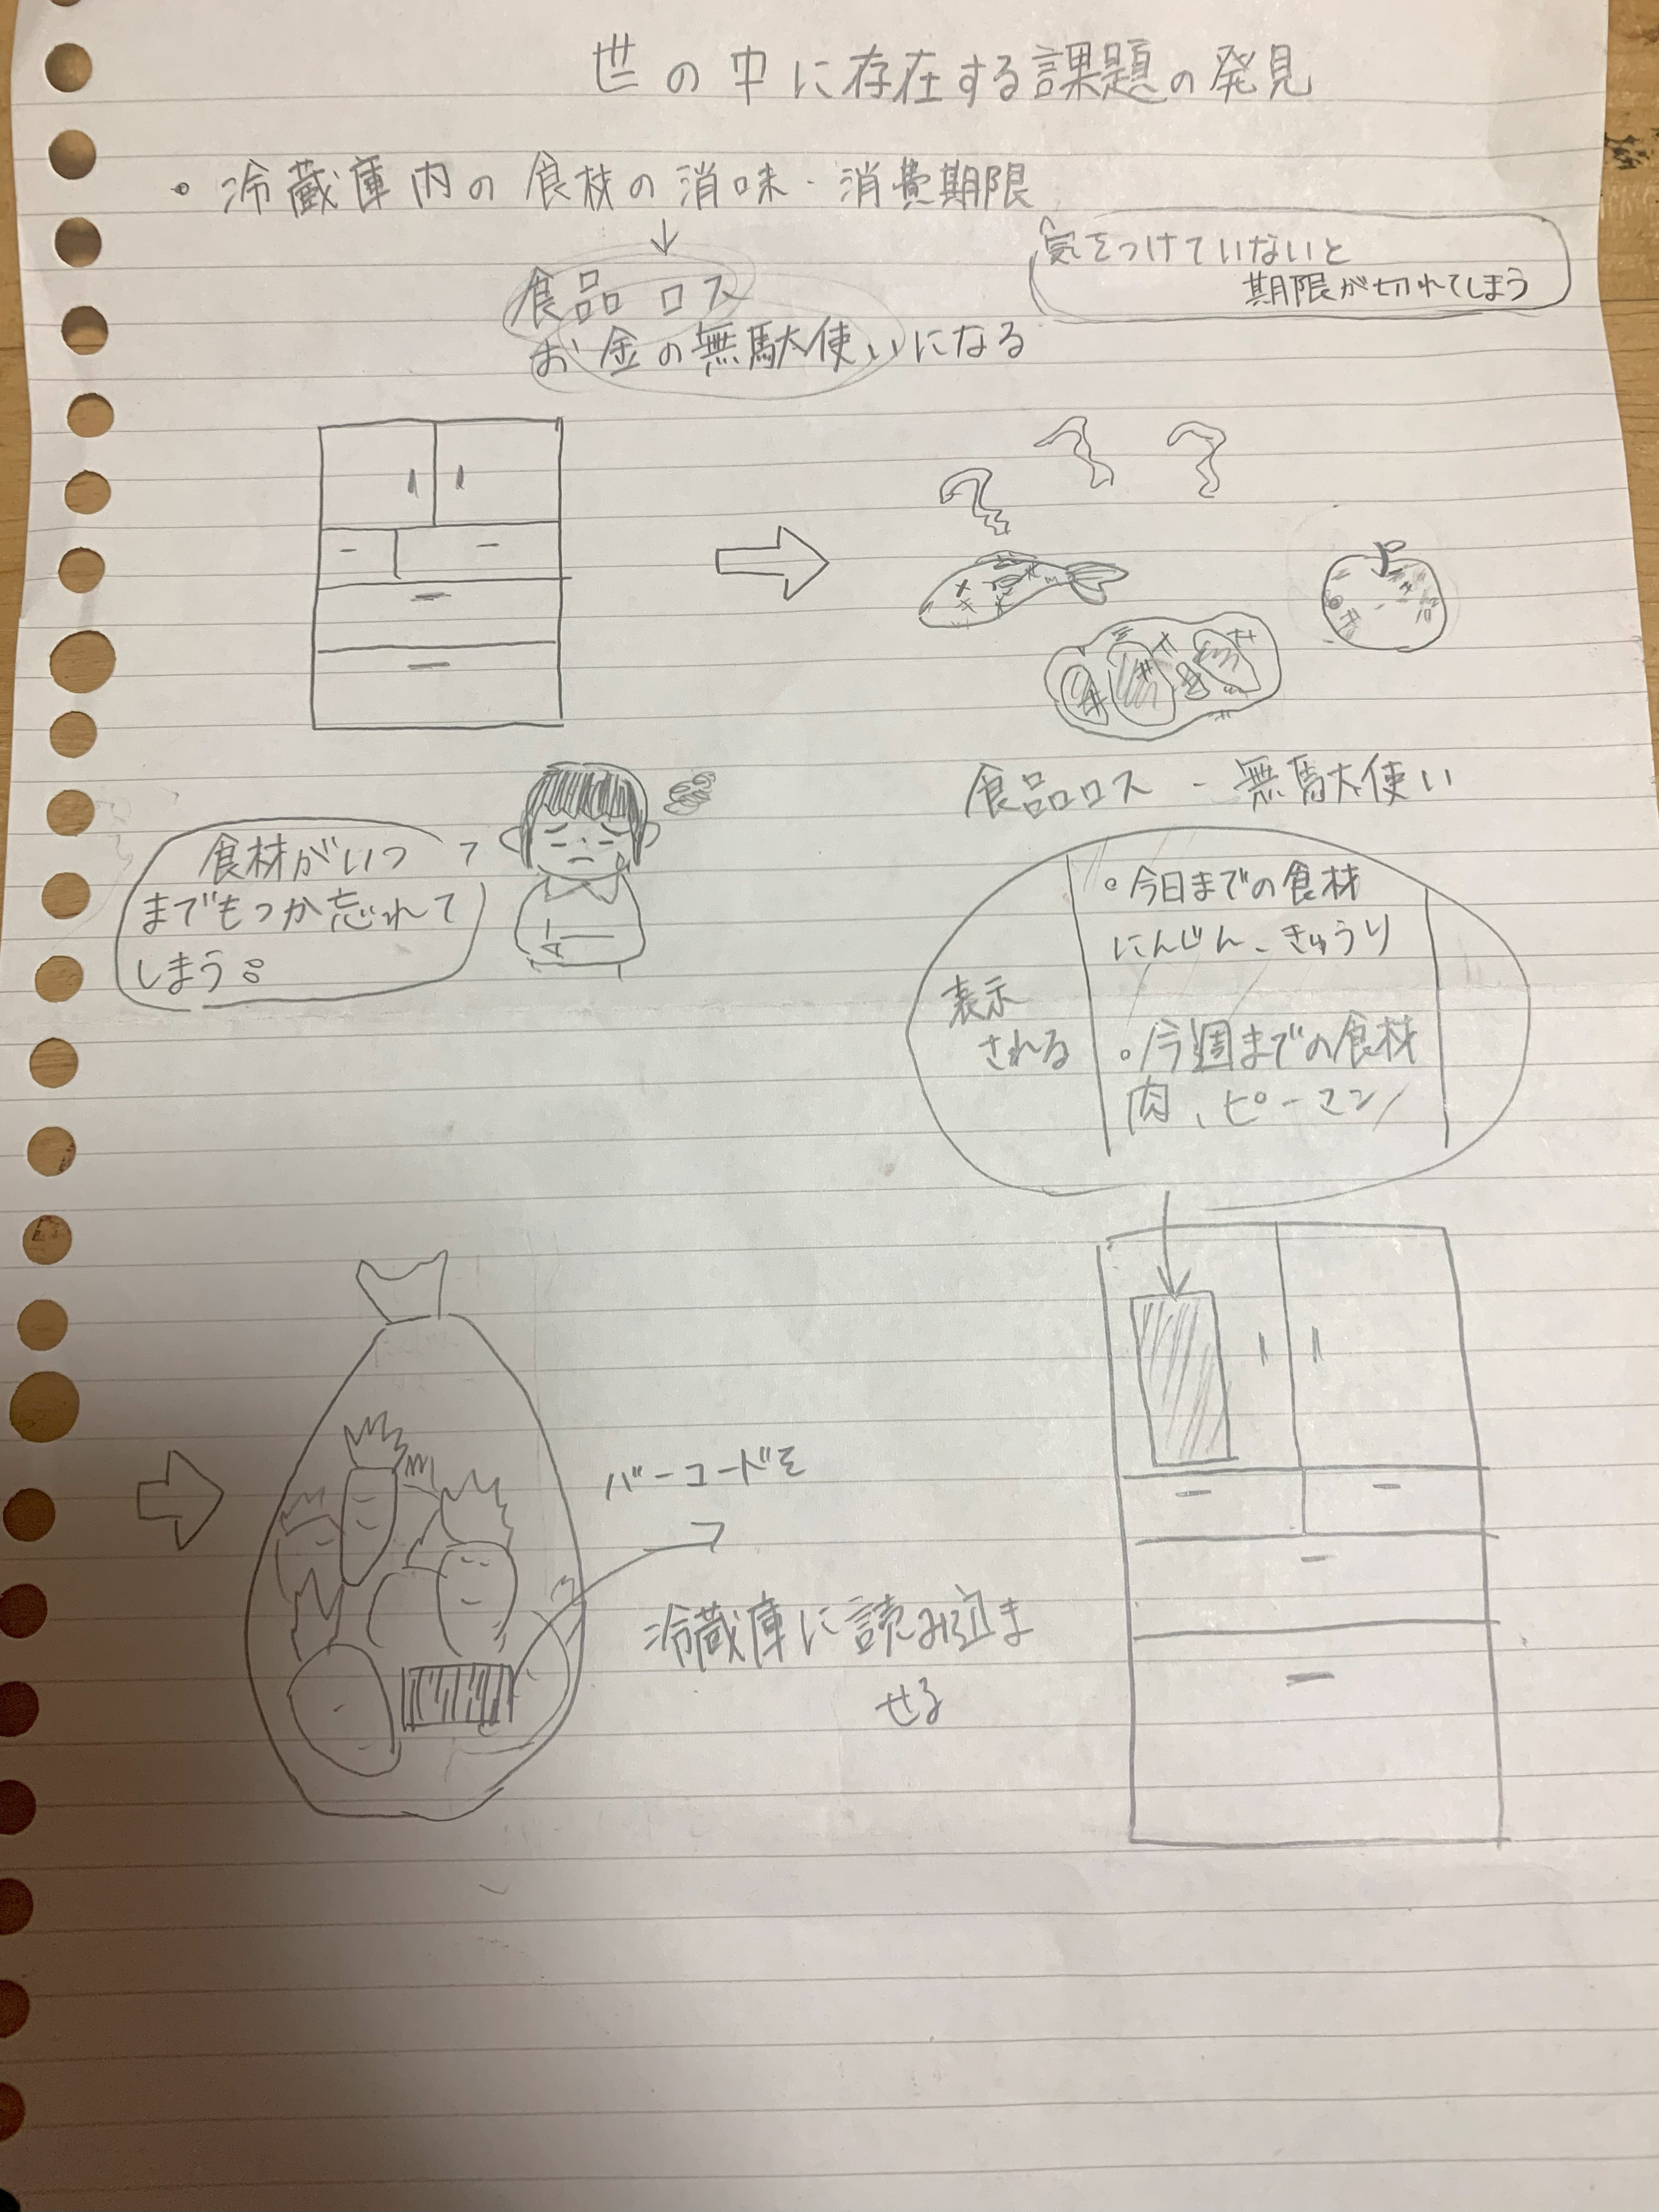 世の中に存在する課題の発見
・冷蔵庫内の食材の消味・消費期限
↓
気をつけていないと
期限が切れてしまう
食品ロス
お金の無駄使いになる
食品ロス・無駄使い
食材がいつ
までもつか忘れて
しまう。
表示
される
・今日までの食材
にんじん、きゅうり
・今週までの食材
肉、ピーマン
バーコードを
冷蔵庫に読み込ま
せる